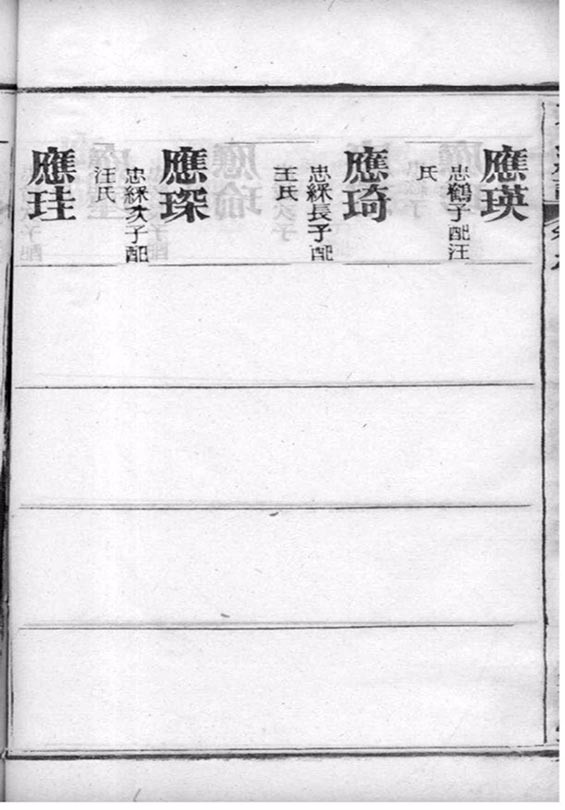 應瑛
忠鶴子配汪
氏
應琦
忠綵長子配
王氏
應琛
忠綵次子配
汪氏
應珪